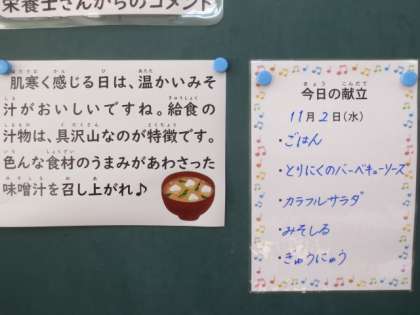 栄養士さんからのコメント
肌寒く感じる日は、温かいみそ
汁がおいしいですね。給食の
汁物は、具沢山なのが特徴です。
色んな食材のうまみがあわさった
味噌汁を召し上がれ♪
今日の献立
11月2日(水)
・ごはん
・とりにくのバーベキューソース
・カラフルサラダ
・みそしる
・ぎゅうにゅう